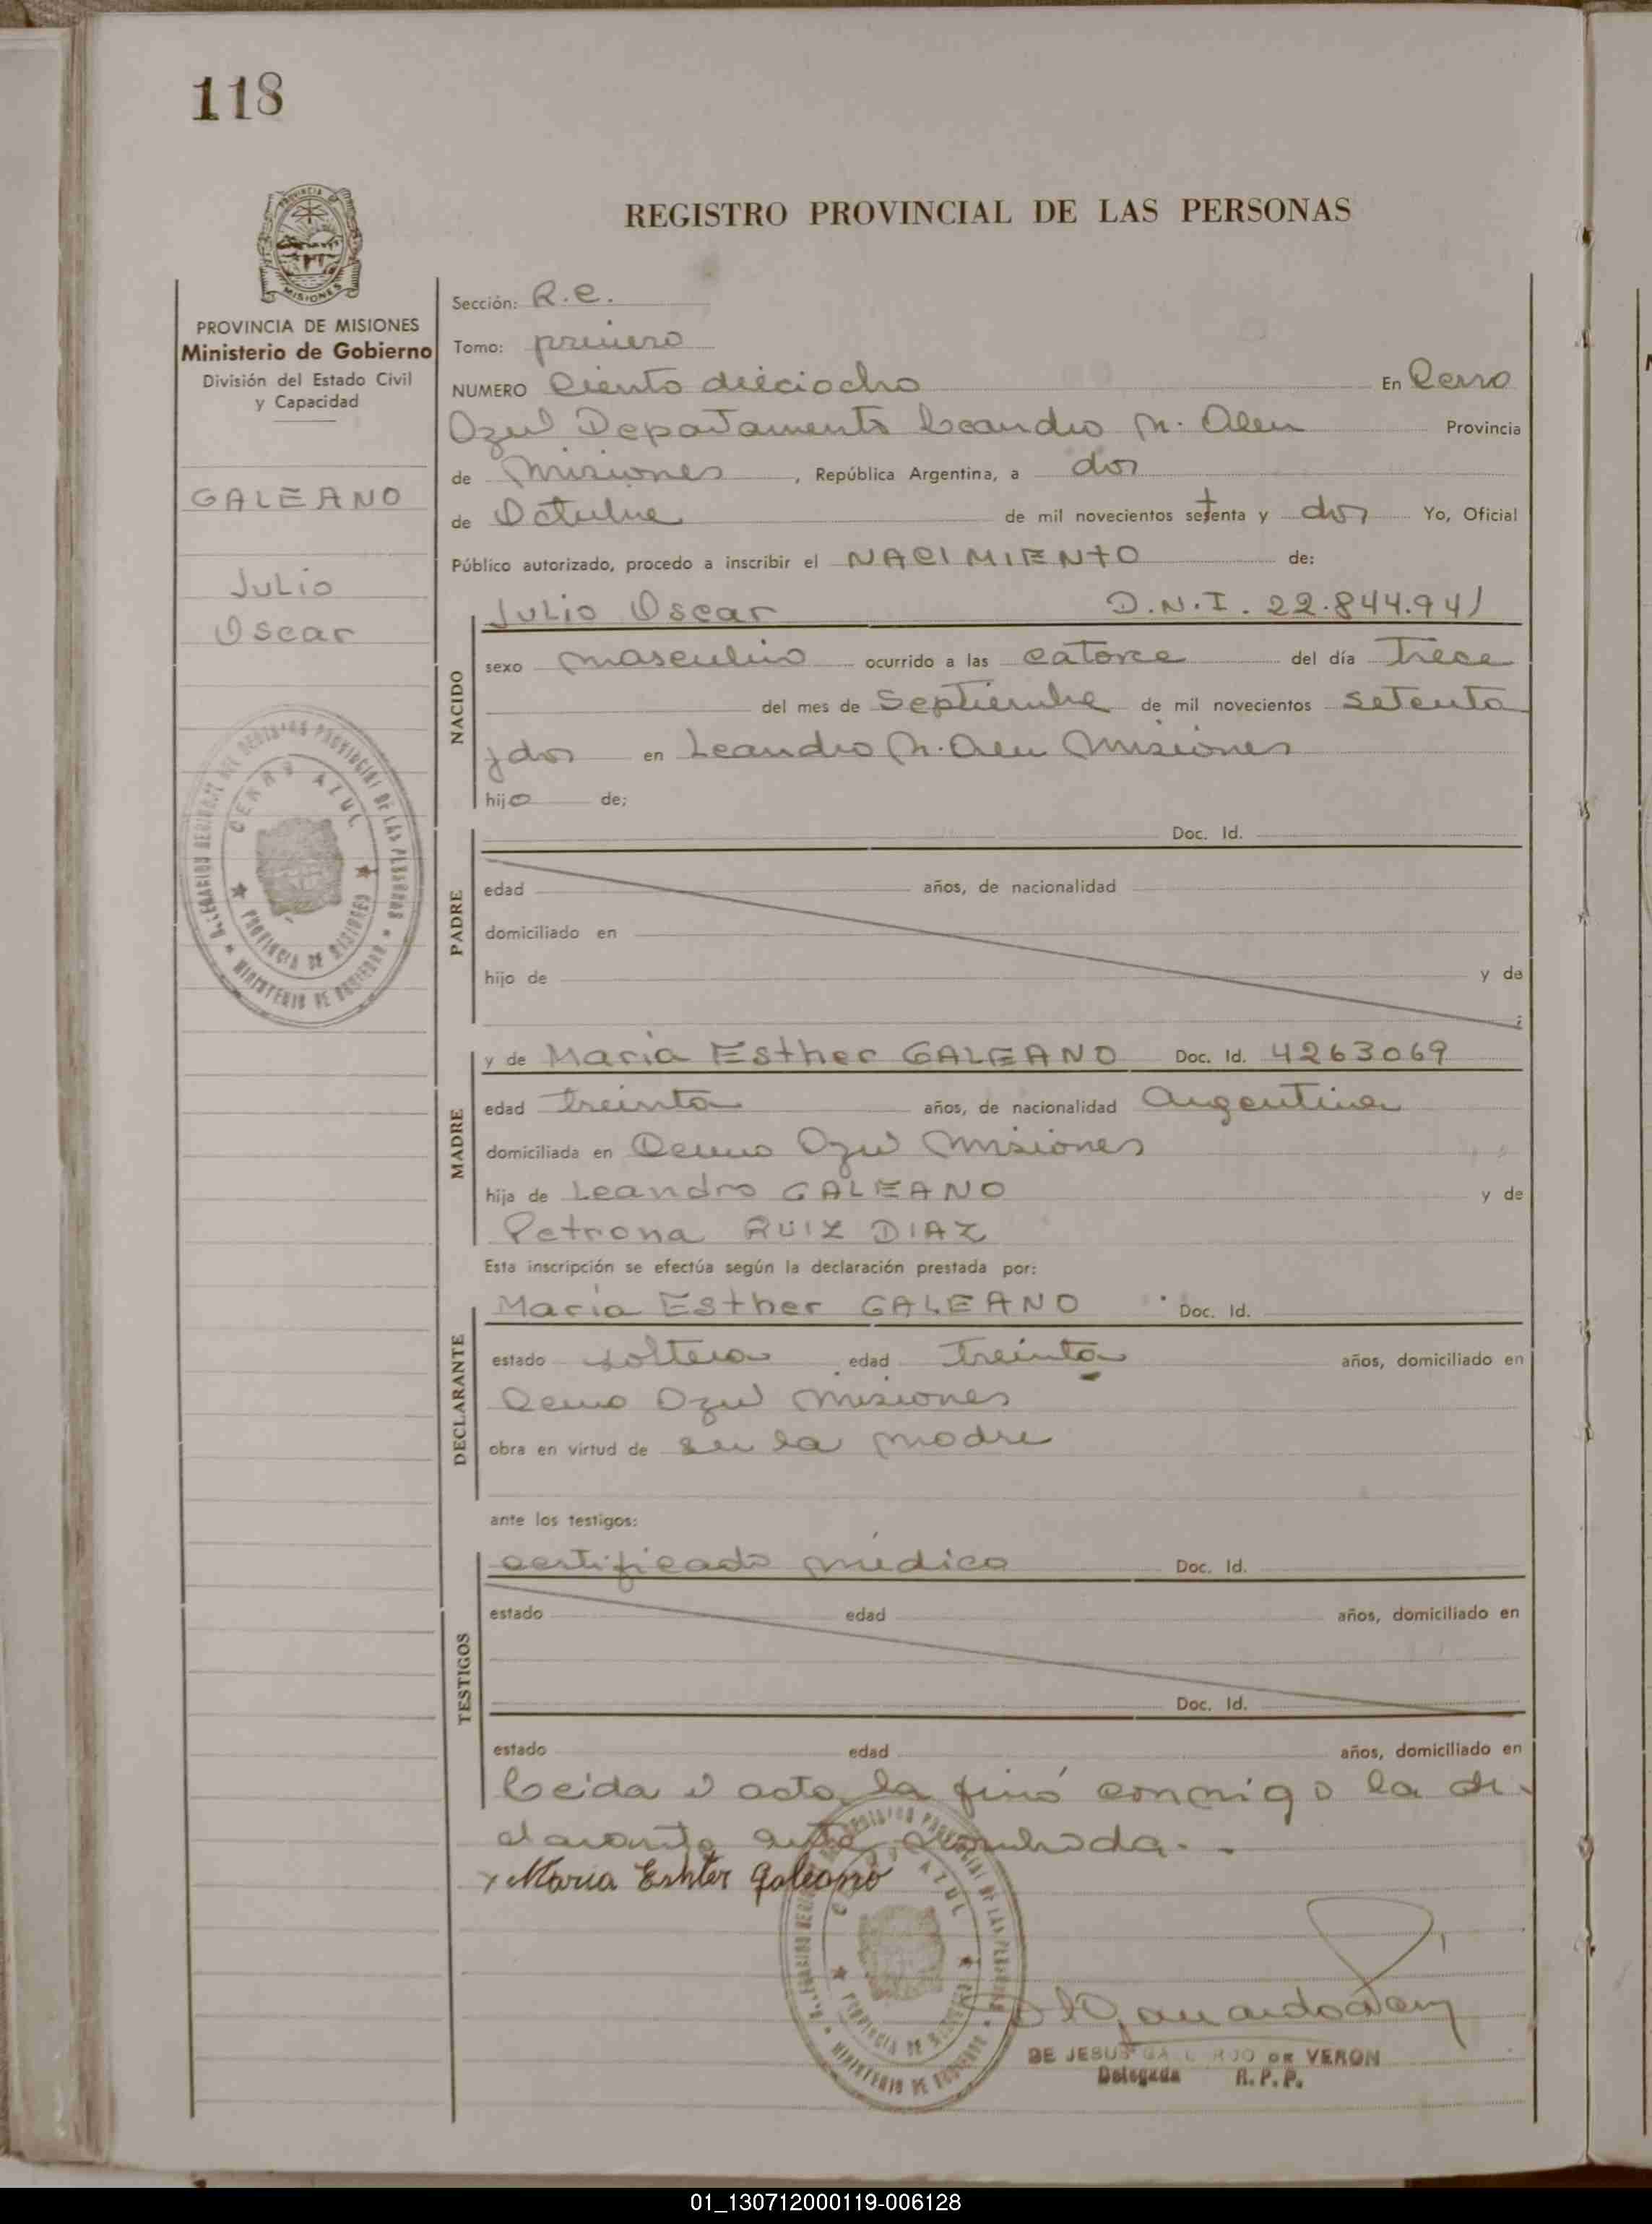 118
PROVINCIA
MISIONES
REGISTRO PROVINCIAL DE LAS PERSONAS
PROVINCIA DE MISIONES
Ministerio de Gobierno
División del Estado Civil
y Capacidad
GALEANO
Julio
Oscar
Sección: R.C.
Tomo: primero
NUMERO Ciento dieciocho En Cerro
Azul Departamento Leandro N. Alem Provincia
de Misiones, República Argentina, a dos
de Octubre de mil novecientos setenta y dos Yo, Oficial
Público autorizado, procedo a inscribir el NACIMIENTO de:
NACIDO
Julio Oscar D.N.I. 22.844.941
sexo masculino ocurrido a las catorce del día Trece
del mes de Septiembre de mil novecientos setenta
y dos en Leandro N. Alem Misiones
hijo de;
PADRE
Doc. Id.
edad años, de nacionalidad
domiciliado en
hijo de y de
;
MADRE
y de Maria Esther GALEANO Doc. Id. 4263069
edad treinta años, de nacionalidad Argentina
domiciliada en Cerro Azul Misiones
hija de Leandro GALEANO y de
Petrona RUIZ DIAZ
Esta inscripción se efectúa según la declaración prestada por:
DECLARANTE
María Esther GALEANO Doc. Id.
estado soltera edad treinta años, domiciliado en
Cerro Azul Misiones
obra en virtud de ser la madre
ante los testigos:
TESTIGOS
certificado médico Doc. Id.
estado edad años, domiciliado en
Doc. Id.
estado edad años, domiciliado en
Leida el acta la firmó conmigo la de-
clarante ante nombrada.
x Maria Eshter Galeano
CERRO AZUL
PROVINCIA DE MISIONES
MINISTERIO DE GOBIERNO
REGISTRO PROVINCIAL DE LAS PERSONAS
DE JESUS GALLARDO DE VERON
Delegada R.P.P.
01_130712000119-006128